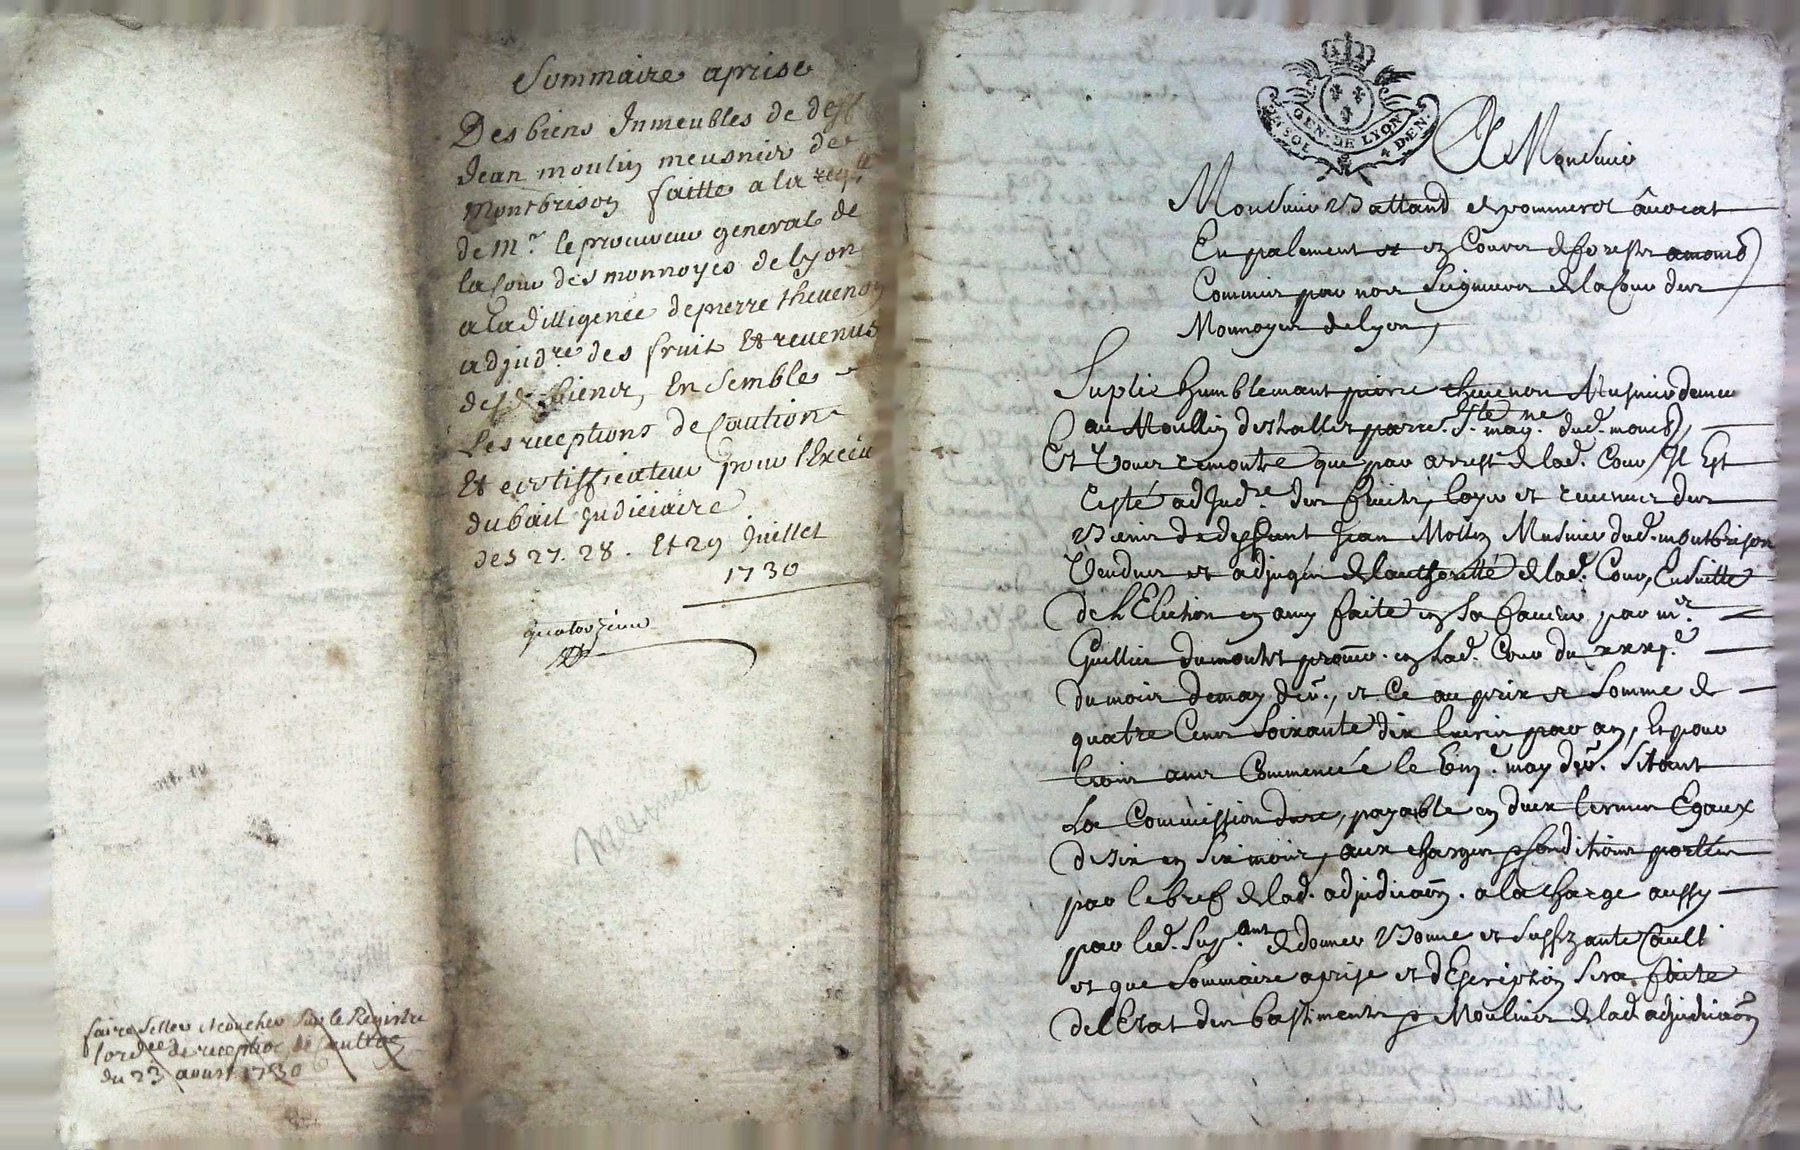 Sommaire aprise
Des biens Inmeubles de deff
Jean moulin meusnier de
Montbrison faitte a la reqte
de Mr. le procureur general de
la Cour des monnoyes de lyon
a la dilligence de pierre thevenon
adjudre. des fruit Et revenus
desd. biens, En Sembles
Les receptions de Caution
Et certifficateur pour l'Execu
du bail judiciaire
des 27. 28. Et 29 Juillet
1730
quatorzieme
meusnier
faire seller et coucher sur le Registre
lord de reception de Caution
du 23 aoust 1730
GEN. DE LYON
SOL 4 DEN.
A Monsieur
Monsieur Battand de pommerol avocat
En parlement et es Cours de forests
Commis par nos Seigneurs de la Cour des
Monnoyes de lyon,
Suplie humblemant pierre thevenon Musnier demeu
au Moullin des halles parre. Ste. mag. dud. montb,
Et Vous remontre que par arrest de lad. Cour Il Est
Esté adjudre. des fruits, loyer et revenus des
Biens de deffunt Jean Mollin Musnier dud. montbrison
Vendus et adjugés de lauthoritté de lad. Cour, Ensuitte
de l'Election en amy faite en sa faveur par mr.
Guillin dumontet procur. en lad. Cour du xxxie.
du mois de may der., et Ce au prix et Somme de
quatre Cens Soixante dix livres par an, Et pour
trois ans Commencée le Sin. may der. Sitant
La Commission dure, payable en deux termes Egaux
de six en six mois, aux charges & Conditions portées
par le bref de lad. adjudicaon. a la Charge aussy
par led. Supant. de donner Bonne et suffizante Cault
et que Sommaire aprise et dEscription sera faite
de l'Etat des bastiments & Moulins de lad. adjudicaon